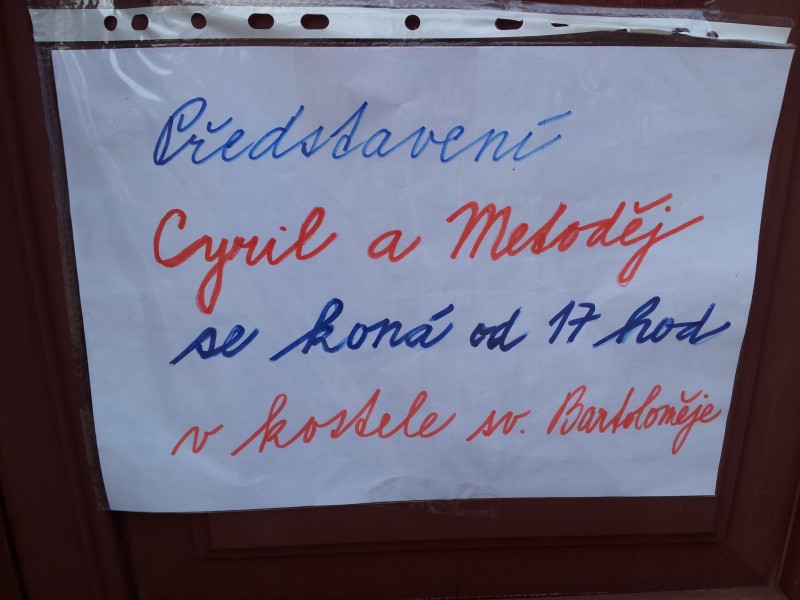 Představení
Cyril a Metoděj
se koná od 17 hod
v kostele sv. Bartoloměje